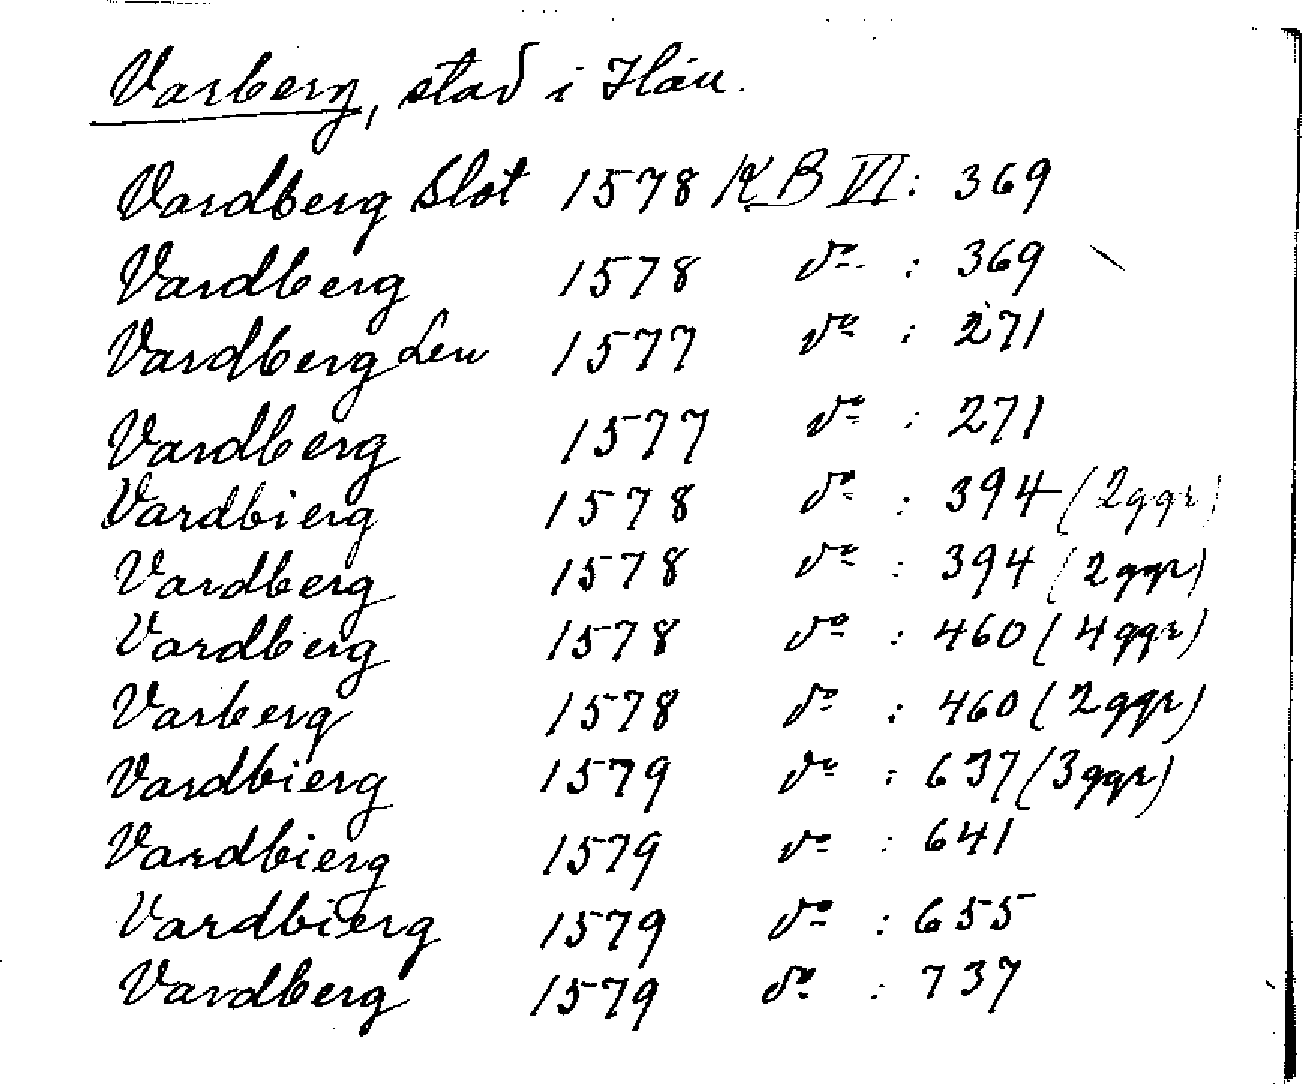 Varberg, stad i Hlän.
Vardberg Slot 1578 KB VI: 369
Vardberg 1578 do : 369
Vardberg Len 1577 do : 271
Vardberg 1577 do : 271
Vardbierg 1578 do : 394 (2ggr)
Vardberg 1578 do : 394 (2ggr)
Vardberg 1578 do : 460 (4ggr)
Varberg 1578 do : 460 (2ggr)
Vardbierg 1579 do : 637 (3ggr)
Vardbierg 1579 do : 641
Vardbierg 1579 do : 655
Vardberg 1579 do : 737